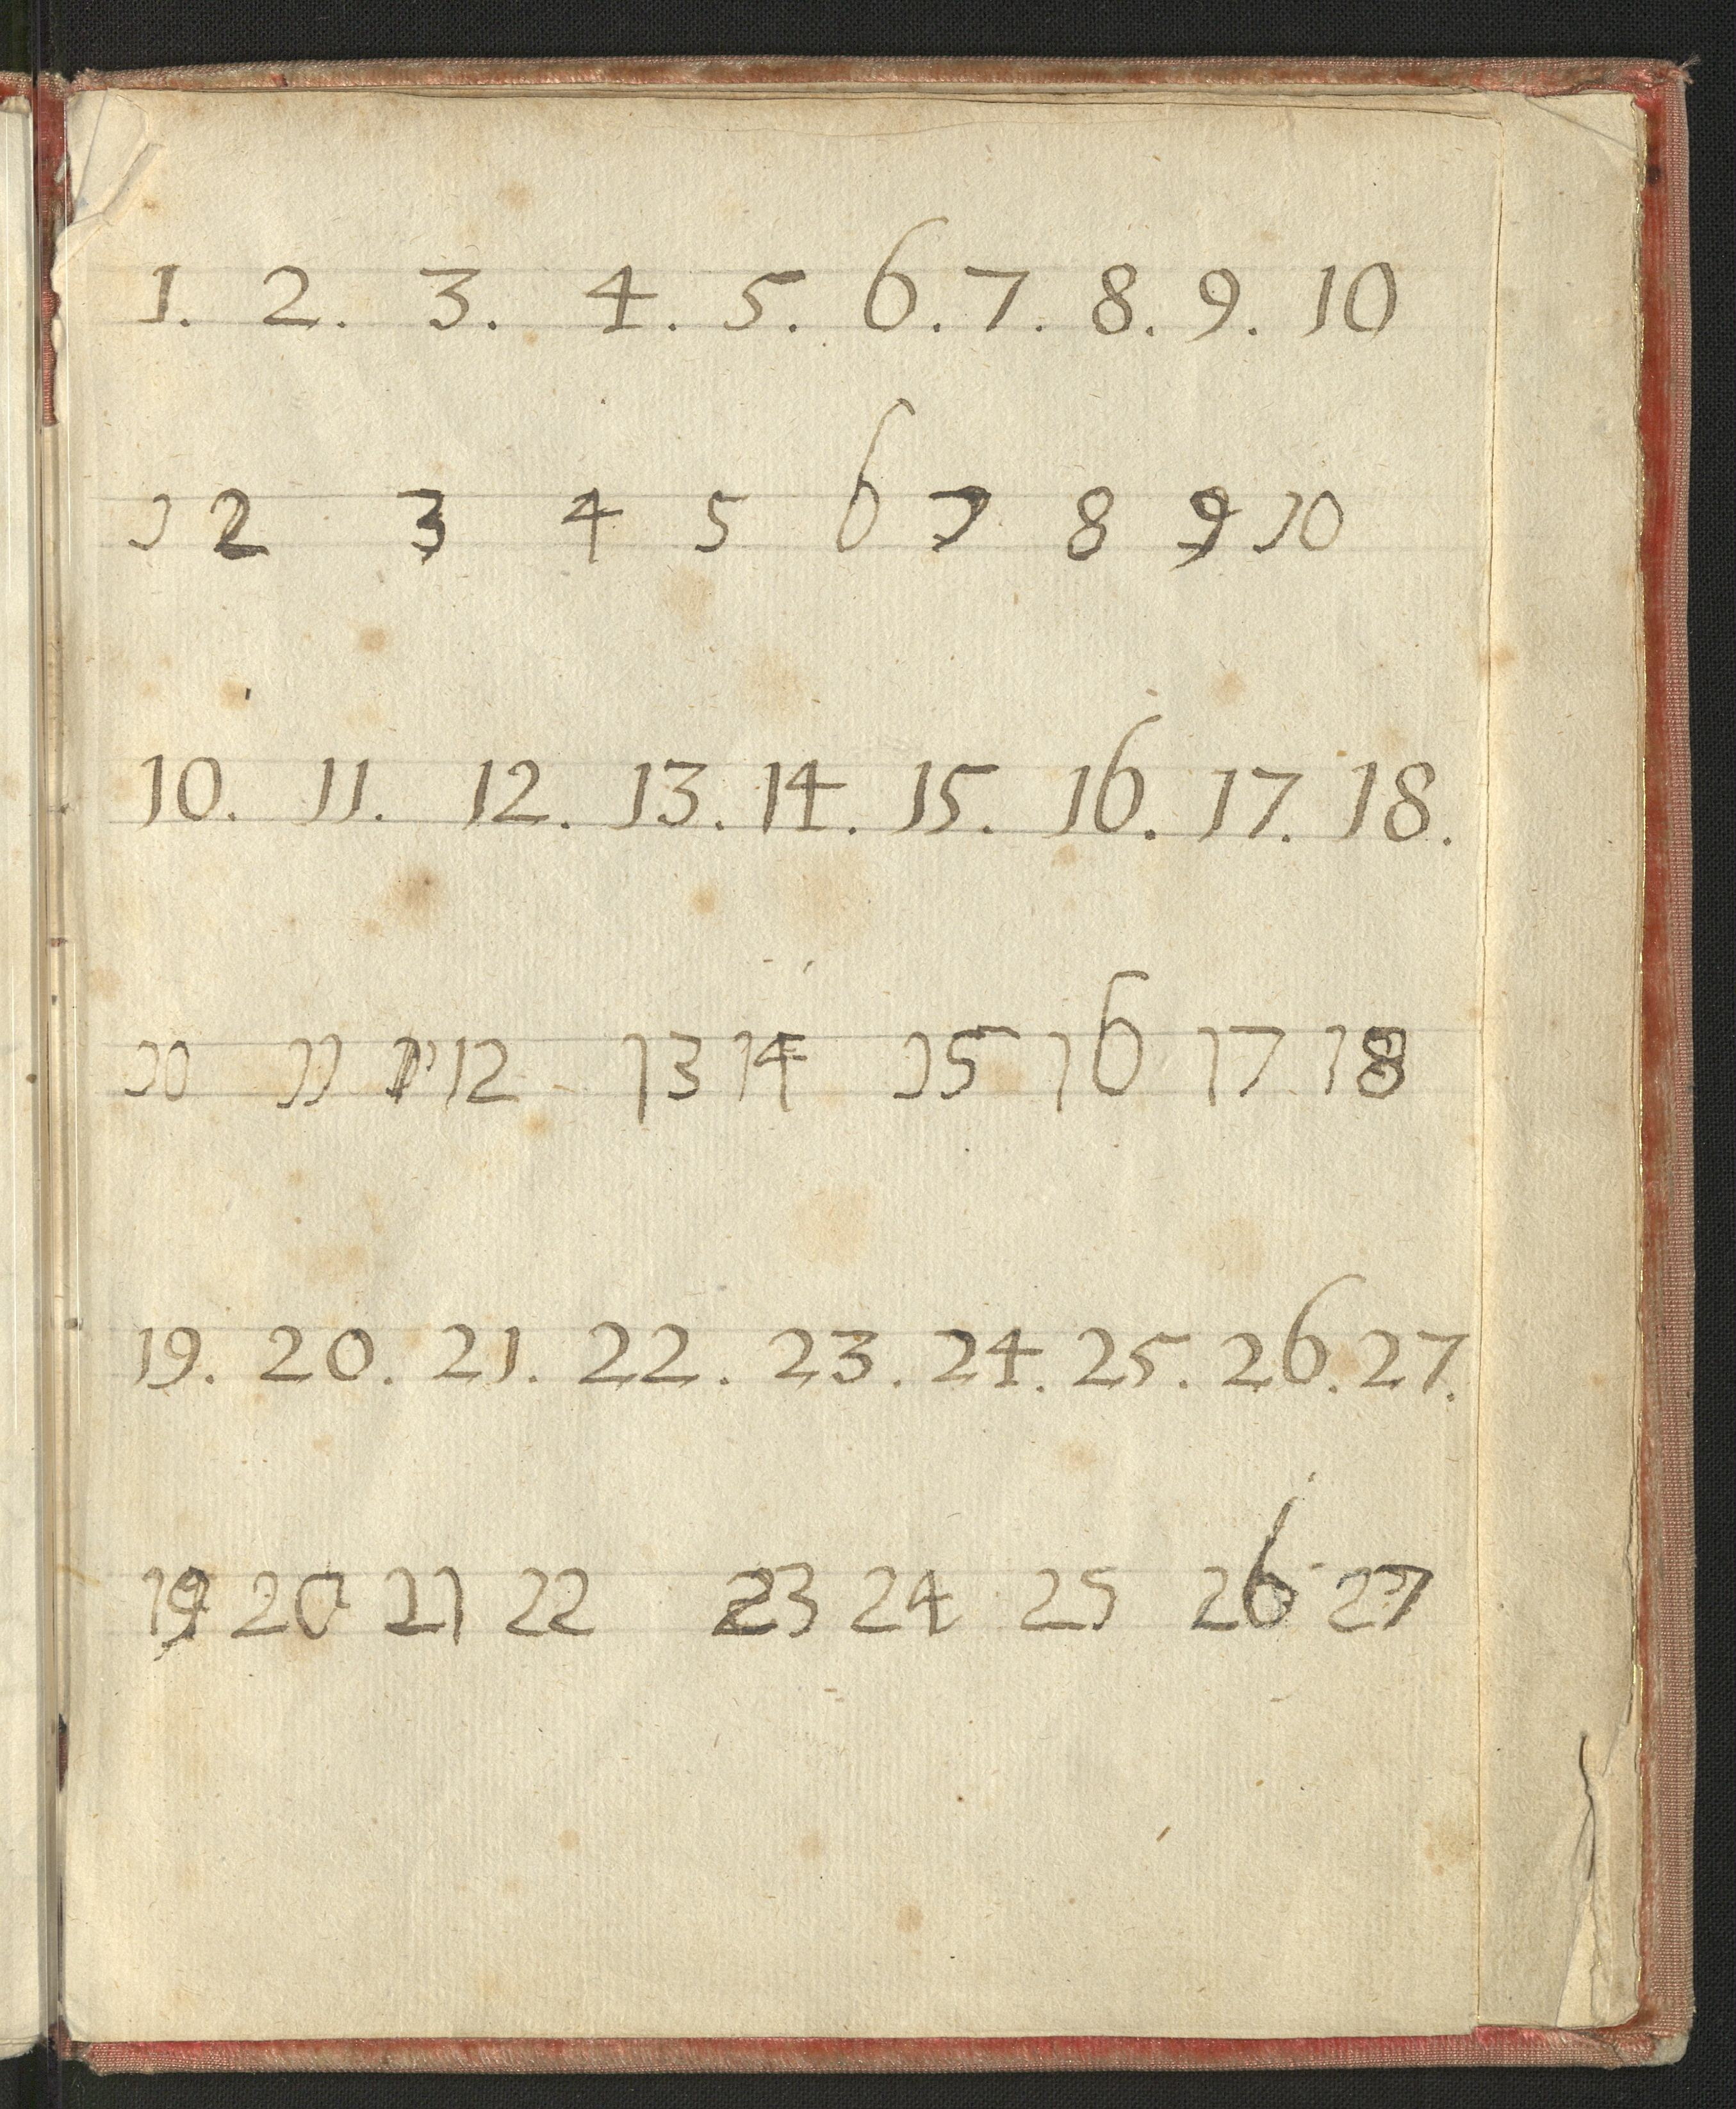 1. 2. 3. 4. 5. 6. 7. 8. 9. 10
1 2 3 4 5 6 7 8 9 10
10. 11. 12. 13. 14. 15. 16. 17. 18.
10 11 12 13 14 15 16 17 18
19. 20. 21. 22. 23. 24. 25. 26. 27.
19 20 21 22 23 24 25 26 27